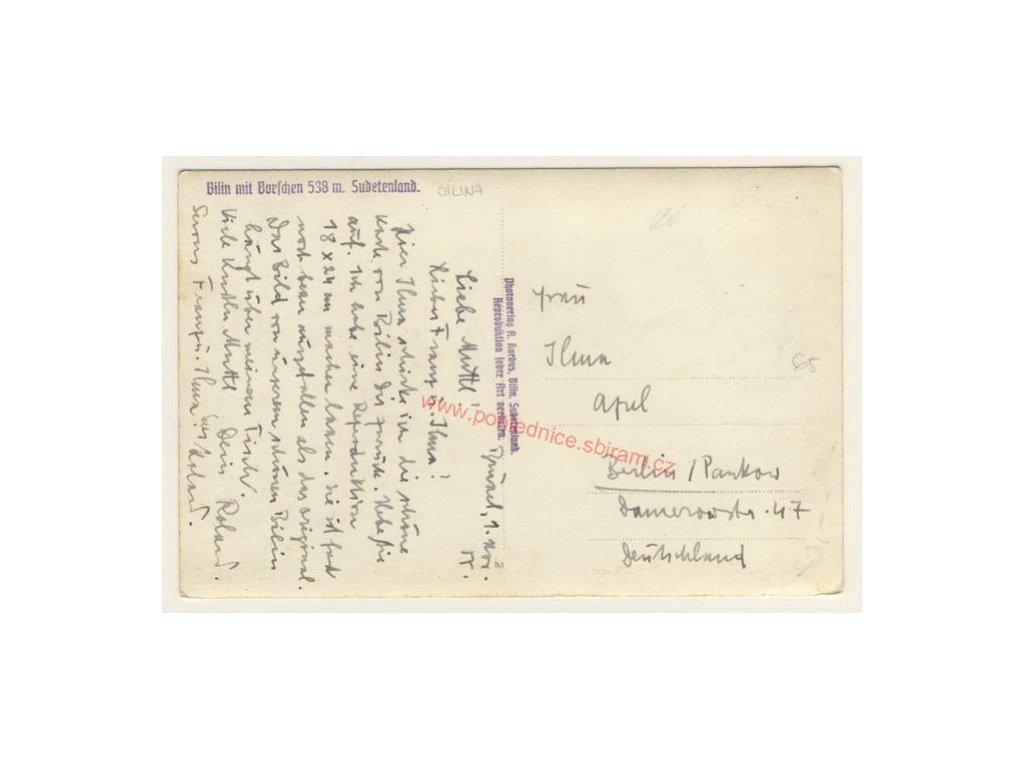 Bilin mit Borschen 538 m. Sudetenland.
BÍLINA
Photoverlag R. Bilin, Sudetenland.
Reproduktion jeder Art verboten.
1. Nov.
Liebe Muttl!
Lieber Franz u. Ilma!
Hier Ilma schicke ich die schöne
Karte von Bilin Dir zurück. Hebe sie
auf. Ich habe eine Reproduktion
18 x 24 cm machen lassen. Sie ist fast
noch besser ausgefallen als das Original.
Das Bild von unserem schönen Bilin
hängt über meinem Tisch.
Viele Muttl Dein Roland.
Servus Franz u. Ilma! Euer Roland.
Frau
Ilma
Apel
65
Berlin / Pankow
Damerowstr. 47
Deutschland
www.pohlednice.sbiram.cz